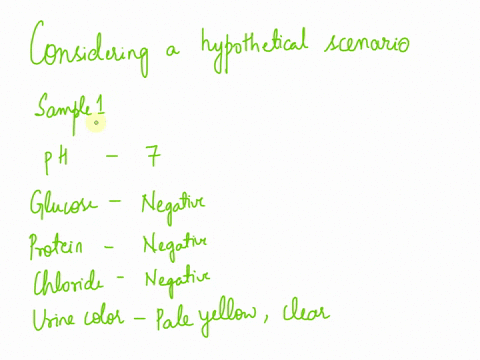 Considering a hypothetical scenario
Sample 1
pH - 7
Glucose - Negative
Protein - Negative
Chloride - Negative
Urine color - Pale yellow, clear